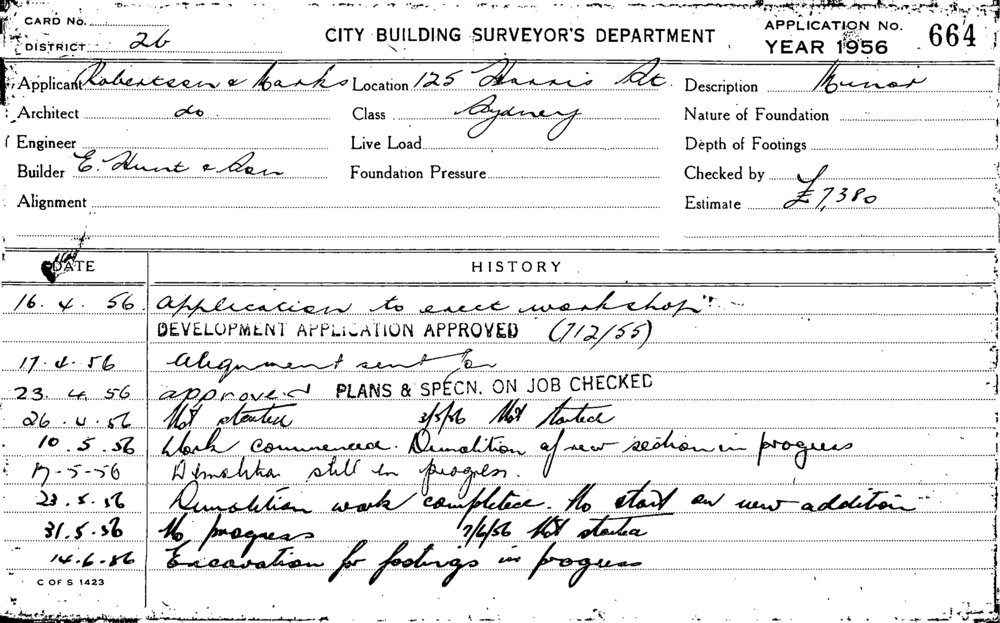 CARD No.
DISTRICT 26
CITY BUILDING SURVEYOR'S DEPARTMENT
APPLICATION No. 664
YEAR 1956
Applicant Robertson & Marks Location 125 Harris St. Description Minor
Architect do Class Sydney Nature of Foundation
Engineer Live Load Depth of Footings
Builder E. Hunt & Son Foundation Pressure Checked by
Alignment Estimate £7,380
DATE HISTORY
16. 4. 56. Application to erect workshop"
DEVELOPMENT APPLICATION APPROVED (712/55)
17.4.56 Alignment sent for
23. 4. 56 approved PLANS & SPECN. ON JOB CHECKED
26.4.56 Not started 3/5/56 Not started
10.5.56 Work commenced. Demolition of section in progress
17-5-56 Demolition still in progress.
23.5.56 Demolition work completed. No start on new addition
31.5.56 No progress 7/6/56 Not started
14.6.56 Excavation for footings in progress
C OF S 1423